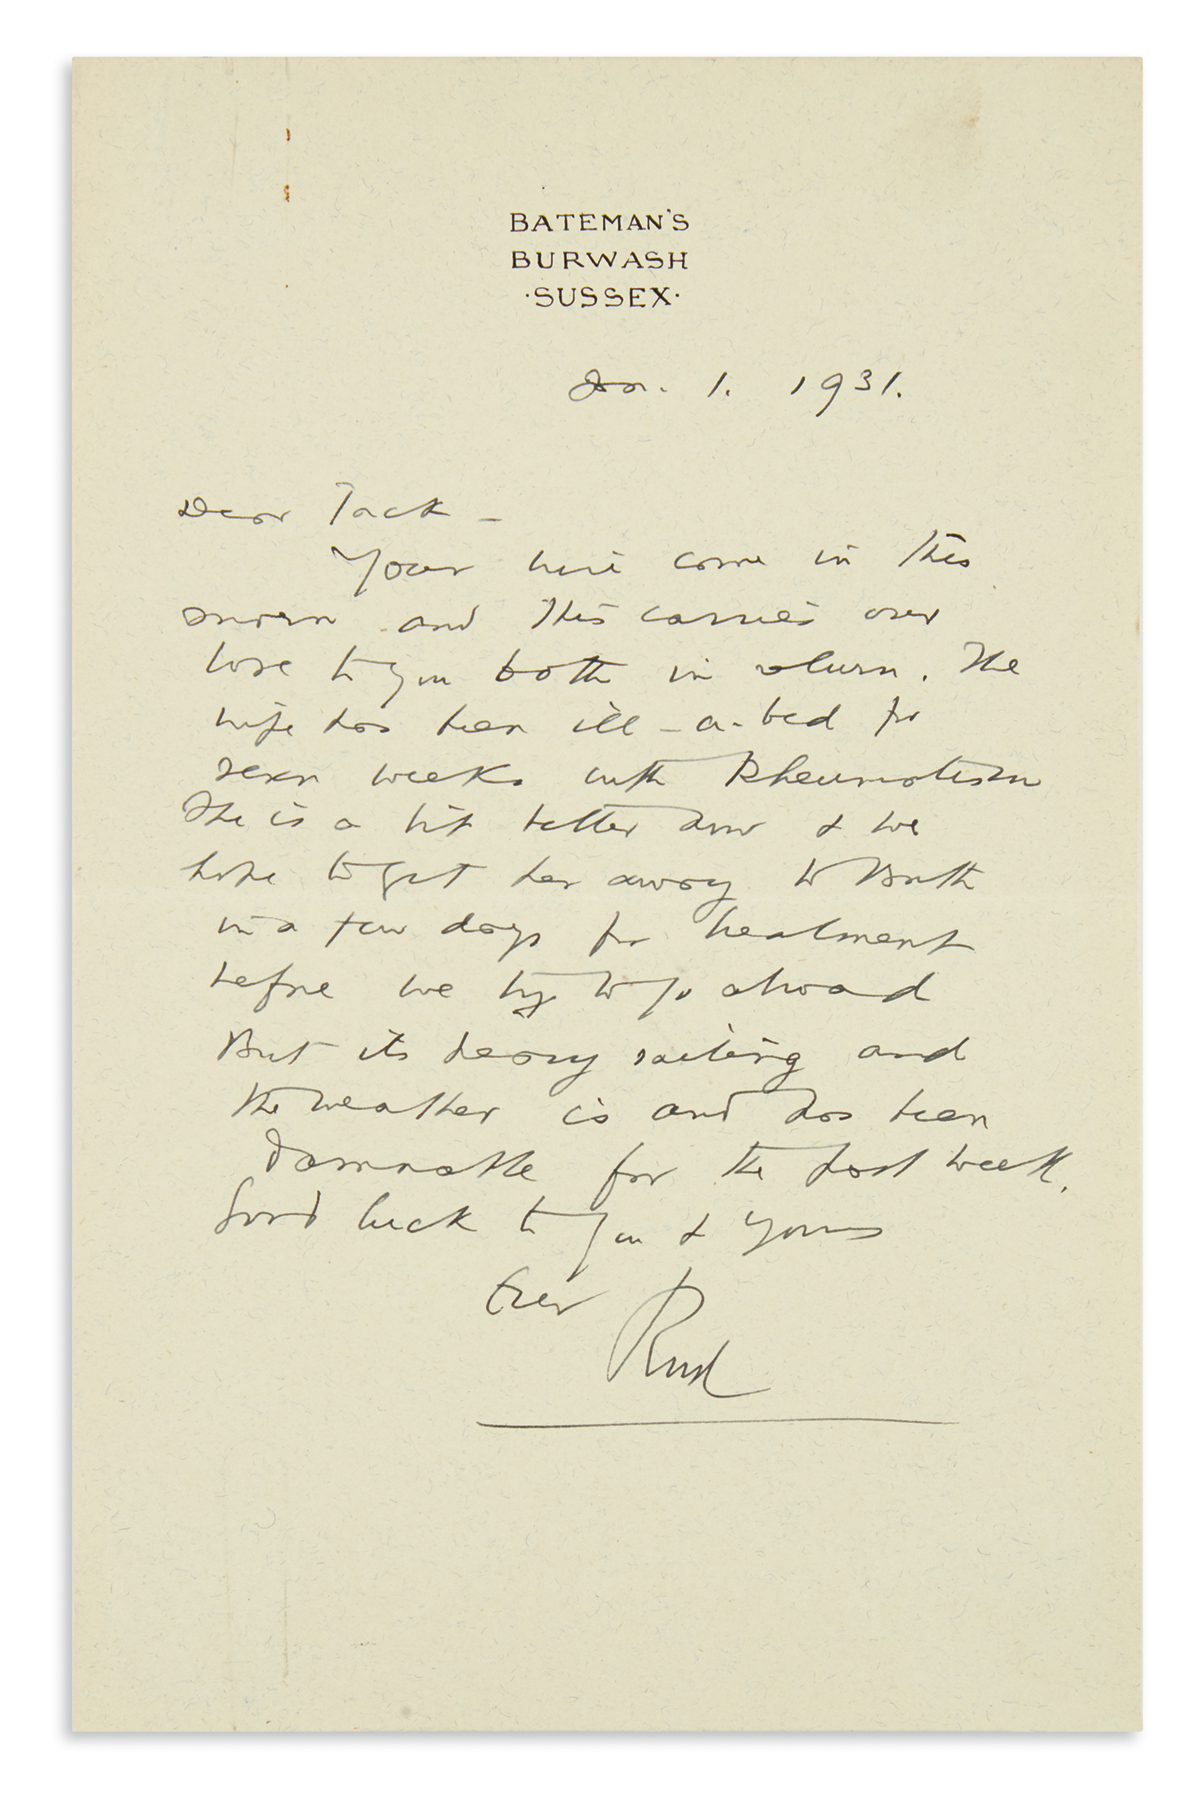 BATEMAN'S
BURWASH
·SUSSEX·
Jan. 1. 1931.
Dear Jack –
Your wire came in this
morn and this carries over
love to you both in return. The
wife has been ill-a-bed for
seven weeks with Rheumatism
She is a bit better now & we
hope to get her away to Bath
in a few days for treatment
before we try to go abroad
But its heavy sailing and
the weather is and has been
damnable for the last week.
Good luck to you & yours
Ever
Rud